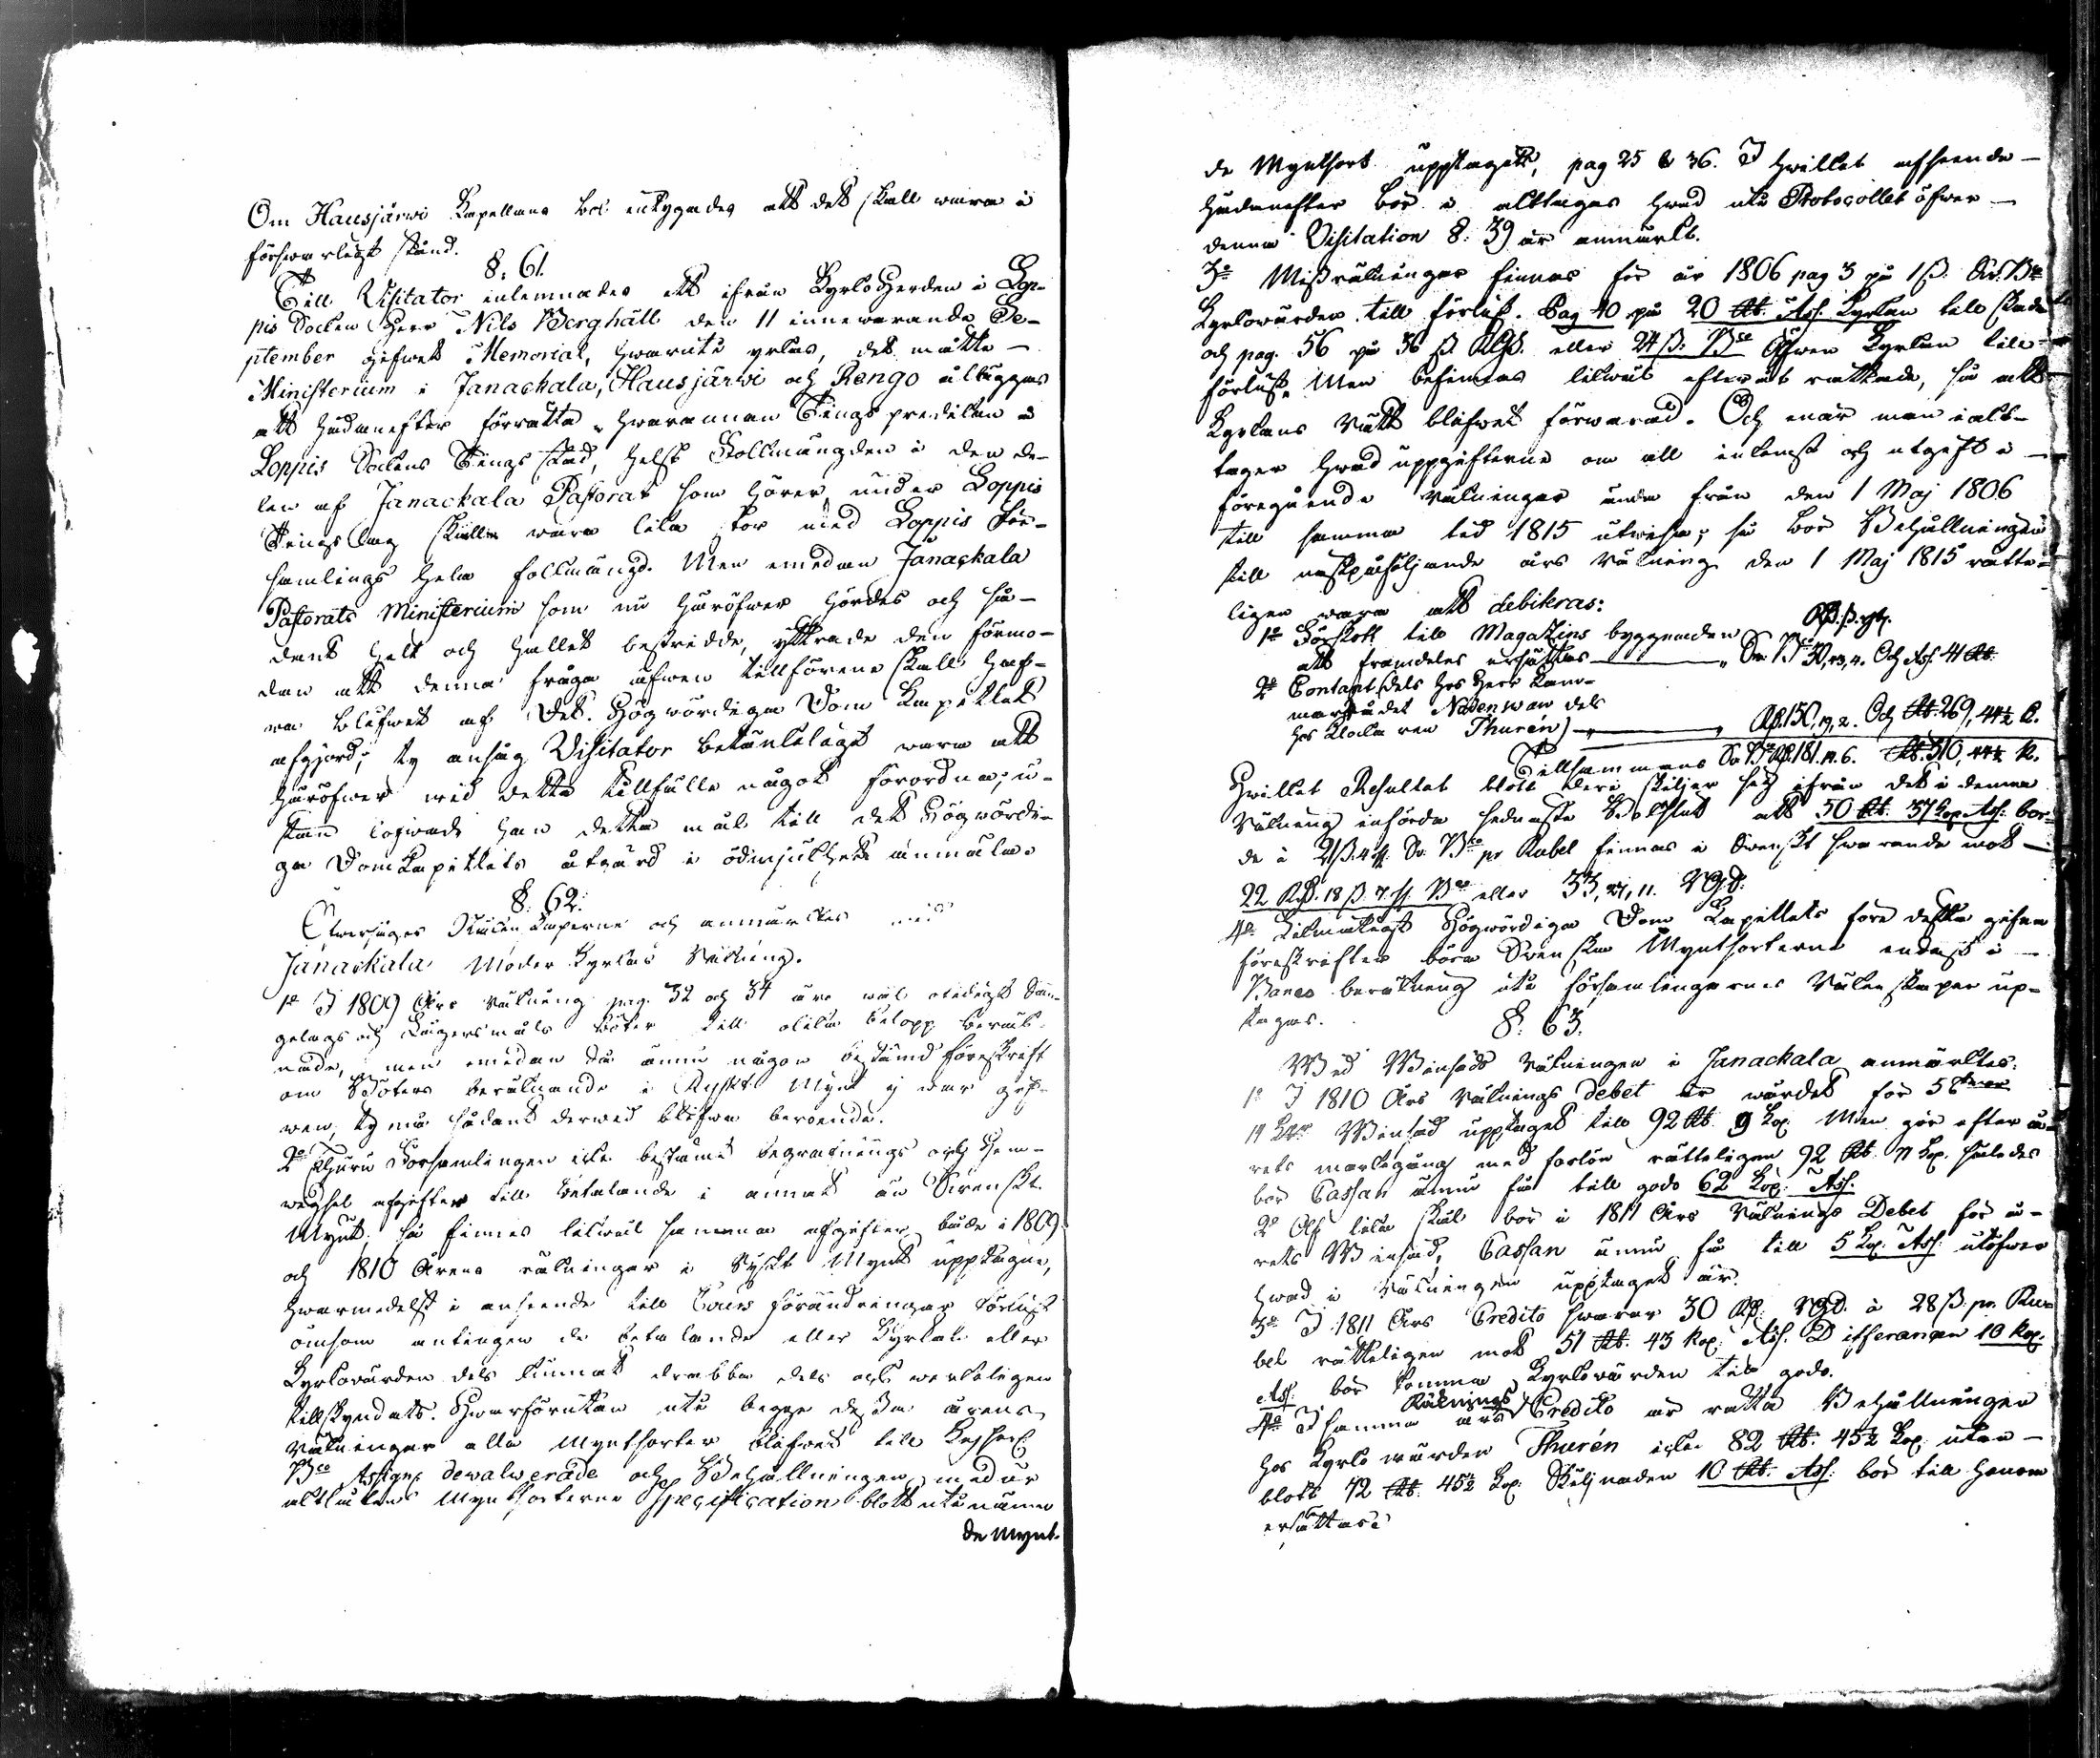 Om Hausjärwi Kapellans bol intygades att det skall wara i
förswarligt stånd.
§. 61.
Till Visitator inlemnades ett ifrån Kyrkoherden i Lop-
pis Socken Herr Nils Berghäll den 11 innewarande Se-
ptember gifwet Memorial, hwaruti yrkas, det måtte
Ministerium i Janackala, Hausjärwi och Rengo åläggas
att hädanefter förrätta hwarannan Tings predikan i
Loppis Sockens Tings stad, helst Folkmängden i den de-
len af Janackala Pastorat som hörer under Loppis
Tings lag skulle wara lika stor med Loppis För-
samlings hela folkmängd. Men emedan Janackala
Pastorats Ministerium som nu häröfwer hördes och så-
dant helt och hållet bestridde, yttrade den förmo-
dan att denna fråga äfwen tillförene skall haf-
wa blifwit af Det Högwördiga Dom Kapitlet
afgjord; ty ansåg Visitator betänkeligt wara att
häröfwer wid detta tillfälle något förordna; u-
tan lofwade han detta mål till det Högwördi-
ga DomKapitlets åtgärd i ödmjukhet anmäla.
§. 62.
Öfwersågos Räkenskaperne och anmärktes wid
Janackala Moder Kyrkas Räkning.
1o I 1809 Års räkning pag. 32 och 34 äro wäl
gelags och Lägersmåls böter till olika belopp beräk-
nade, men emedan då ännu någon bestämd föreskrift
om Böters beräknande i Ryskt Mynt ej war gif-
wen, ty må sådant derwid blifwa beroende.
2o Ehuru Församlingen icke bestämt begrafnings och
afgifter till betalande i annat än Swenskt
Mynt; så finnes likwäl samma afgifter både i 1809
och 1810 Årens räkningar i Ryskt Mynt upptagne,
hwarmedelst i anseende till Cours förändringar förlust
ömsom antingen de betalande eller Kyrkan eller
Kyrkowärden dels kunnat drabba dels ock werkeligen
tillskyndats. Hwarförutan uti begge dessa årens
räkningar alla Myntsorter blifwit till
Bco Assign. devalverade och Behållningen medör
Myntsorterne Specification blott uti nämn
de Mynt-
de Myntsort upptaget, pag 25 & 36. I hwilket afseende
hädanefter bör i akttagas hwad uti Protocollet öfwer
denna Visitation §. 39 är anmärkt.
3o Missräkningar finnas för år 1806 pag 3 på 1 ß. Sv. Bco
Kyrkowärden till förlust. Pag 40 på 20 Rb. Ass. Kyrkan till skada
och pag. 56 på 36 ß RGS. eller 24 ß. Bco Äfwen Kyrkan till
förlust. Men befinnas likwäl efteråt rättade, så att
Kyrkans rätt blifwit förwarad. Och enär man iakt-
tager hwad uppgifterne om all inkomst och utgift i
föregående räkningar ända från den 1 Maj 1806
till samma tid 1815 utwisa; så bör Behållningen
till nästpåföljande års räkning den 1 Maj 1815 rätte-
ligen wara att debiteras:
1o Förskott till Magazins byggnaden
att framdeles ersättas
2o Contant (dels hos Herr Kam-
marrådet Nådenswan dels
hos Klockaren Thurén)
Tillsammans
Hwilket Resultat blott deri skiljer sig ifrån det i denna
räkning införda sednaste Bokslut att 50 Rb. 37 Kop. Ass. bor-
de à 21 ß. 4 rst. Sv. Bco pr Rubel finnas i Swenskt swarande mot
22 Rd. 18 ß. 7 rst. Bco eller 33, 27, 11. RGd.
4o Likmäligt Högwördiga Dom Kapitlets före detta gifna
föreskrifter böra Swenska Myntsorterne endast i
Banco beräkning uti församlingarnes Räkenskaper up-
tagas.
§. 63.
Wid Winsäds räkningen i Janackala anmärktes:
1o I 1810 Års Räknings Debet är wärdet för 5
Winsäd upptaget till 92 Rb. 9 Kop. Men gör efter å-
rets markegång med forlön rätteligen 92 Rb 71 Kop. således
bör Cassan ännu få till godo 62 Kop. Ass.
2o Af lika skäl bör i 1811 Års Räknings Debet för å-
rets Winsäd, Cassan ännu få till 5 Kop. Ass. utöfwer
hwad i Räkningen upptaget är.
3o I 1811 Års Credito swarar 30 Rd. RGd. à 28 ß. pr. Ru-
bel rätteligen mot 51 Rb. 43 Kop. Ass. Differancen 10 Kop.
Ass. bör komma Kyrkowärden till godo.
4o I samma års Räknings Credito är rätta Behållningen
hos Kyrkowärden Thurén icke 82 Rb. 45½ Kop. utan
blott 72 Rb. 45½ Kop. Skiljnaden 10 Rb. Ass. bör till honom
ersättas.